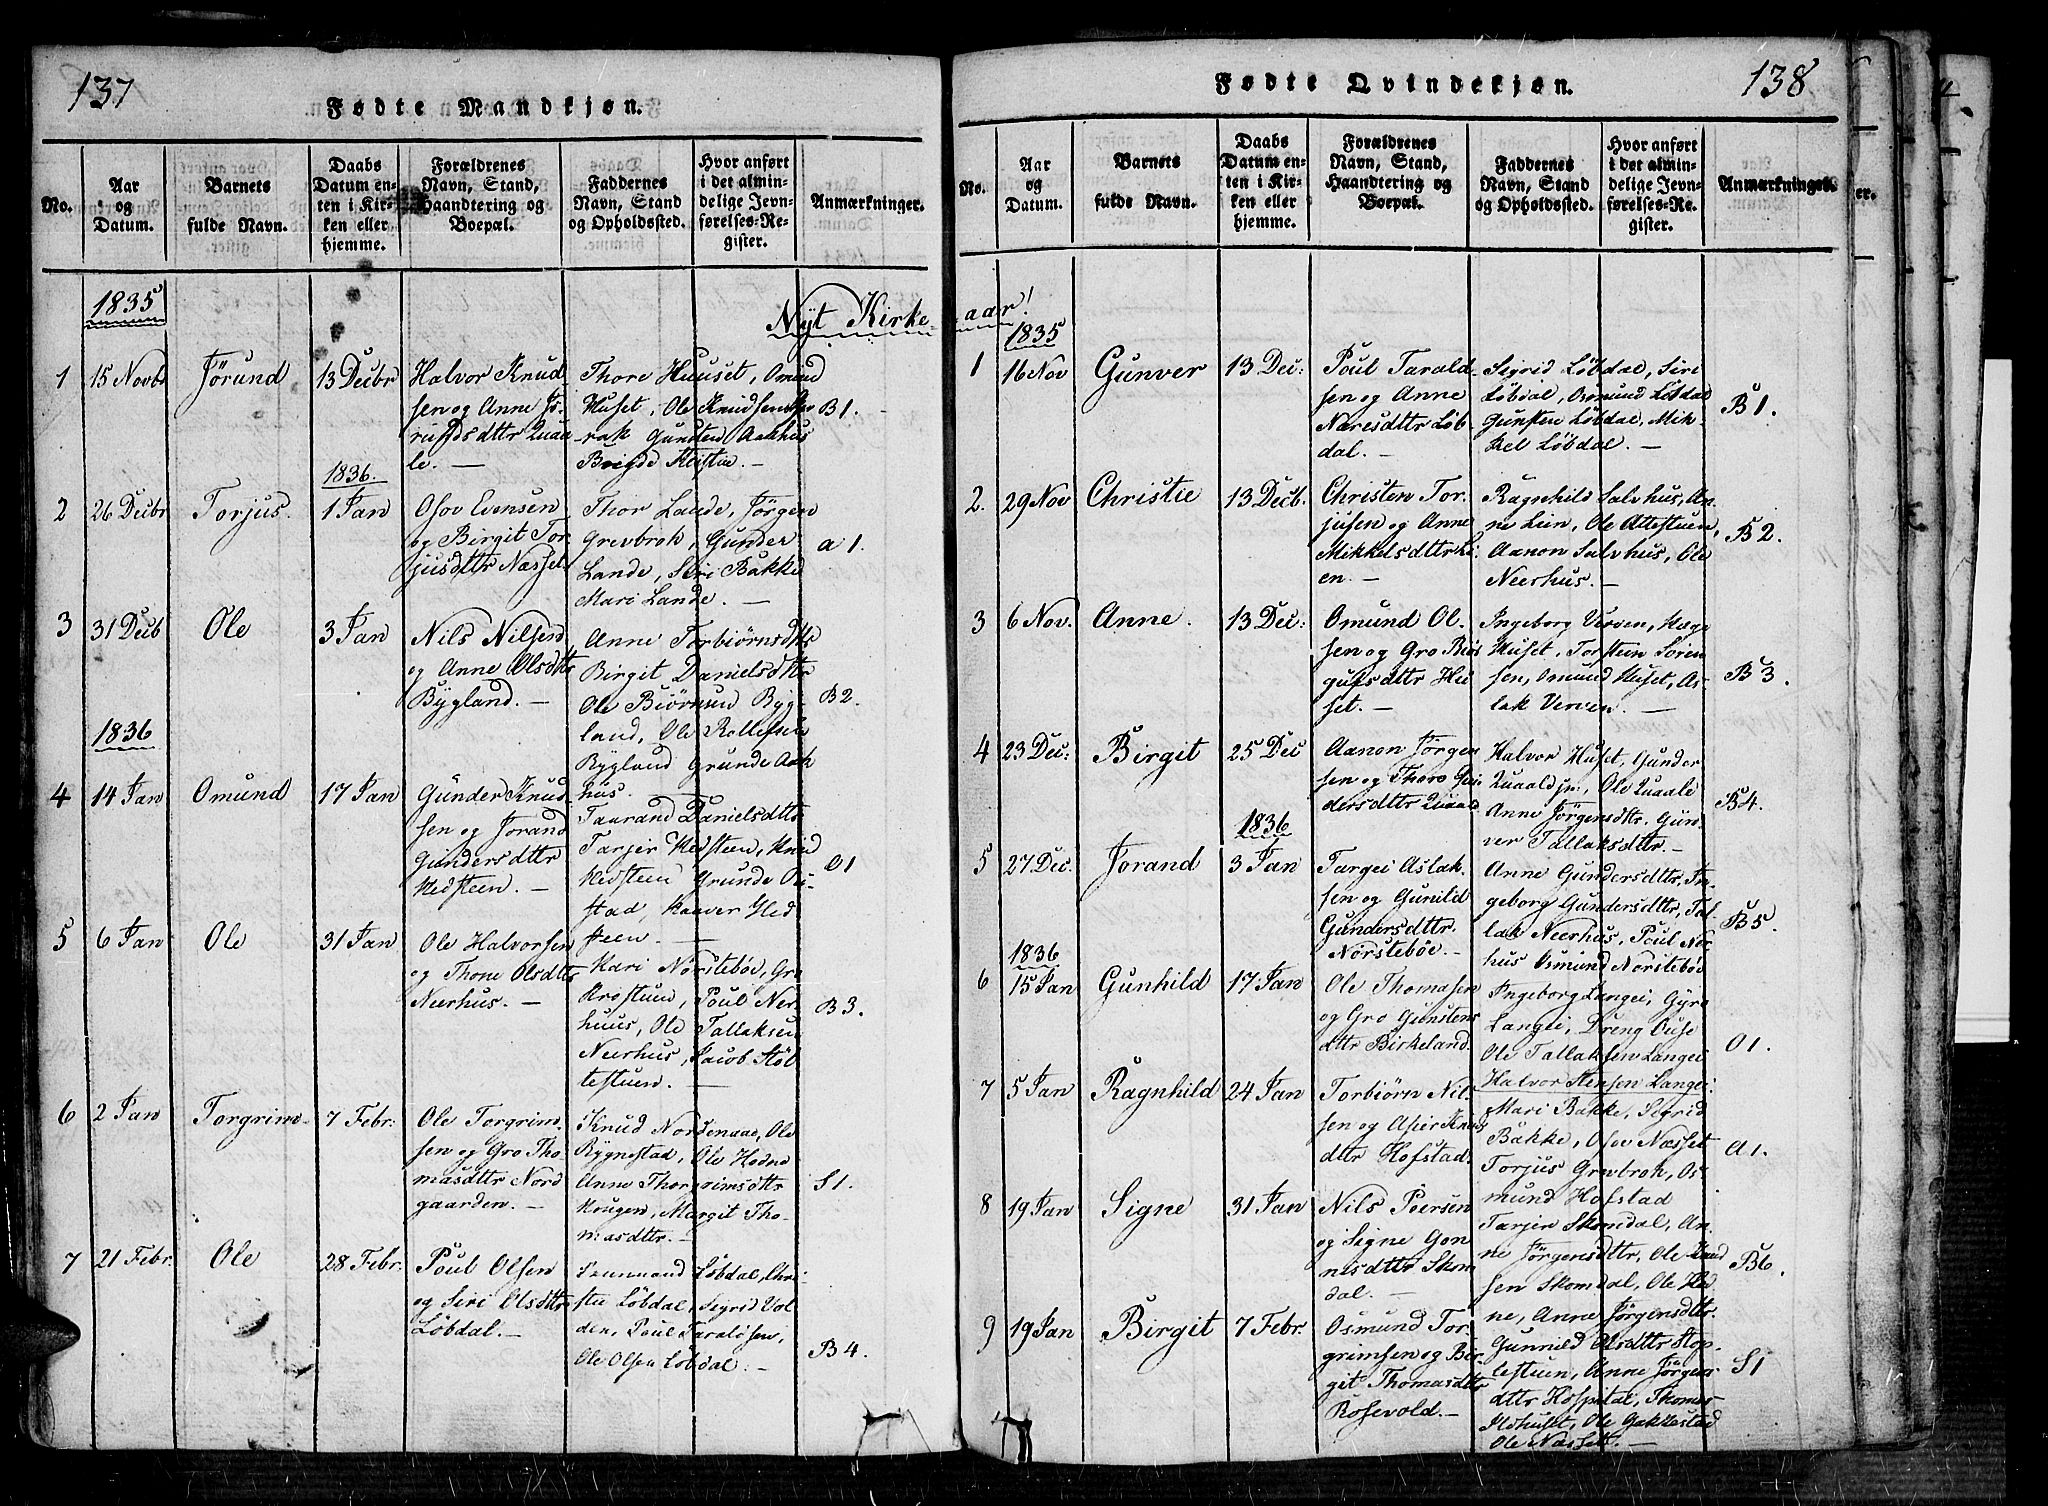 137
Fødte Mandkjøn.
No.
Aar
og
Datum.
Barnets
fulde Navn.
Daabs
Datum en-
ten i Kir-
ken eller
hjemme.
Forældrenes
Navn, Stand,
Haandtering og
Boepæl.
Faddernes
Navn, Stand
og Opholdssted.
Hvor anført
i det almin-
delige Jevn-
førelses-Re-
gister.
Anmærkninger.
1835
Nÿt Kirke-
1
15 Novb
Jörund
13 Decbr
Halvor Knud-
sen og Anne
dttr Quaa-
le. —
Thore Huuset, Omund
Huset, Ole Knudsen
Gunsten Aakhus
B1.
1836.
2
26 Decbr
Torjus.
1 Jan
Osov Evensen
og Birgit Tor-
jusdttr Næsset
Thor Lande, Jörgen
Grevbrok, Gunder
Lande, Siri Bakke
Mari Lande. —
a 1.
3
31 Decb
Ole
3 Jan
Nils Nilsen
og Anne Olsdttr
Bÿgland. —
Anne Torbiörnsdttr
Birgit Danielsdttr
Ole Biörnsen Byg-
land, Ole Rollefsen
Bygland Grunde Aak
hus. —
B2.
1836
4
14 Jan
Omund
17 Jan
Gunder Knud-
sen og Jorand
Gundersdttr
Hedsteen. —
Taarand Danielsdttr
Tarjer Hedsteen, Knud
Hedsteen Grunde
stad, Haaver Hed
steen. —
O1
5
6 Jan
Ole
31 Jan
Ole Halvorsen
og Thone Olsdttr
Neerhus. —
Kari Norstebøe, Gro
Krosteen, Poul Ner-
huus, Ole Tallaksen
Neerhus, Jacob Støl-
testuen. —
B3.
6
2 Jan
Torgrim
7 Febr:
Ole Torgrim-
sen og Gro Tho-
masdttr Nord
gaarden. —
Knud Nordenaae, Ole
Rygnestad, Ole Hodne
Anne Thorgrimsdttr
Krugen, Margit Tho-
masdttr. —
S1.
7
21 Febr.
Ole
28 Febr.
Poul Olsen
og Siri Olsdttr
Löbdal. —
Löbdal, Chri-
stie Löbdal, Sigrid Vol-
den, Poul Taraldsen,
Ole Olsen Löbdal. —
B4.
138
Fødte Qvindekjøn.
No.
Aar
og
Datum.
Barnets
fulde Navn.
Daabs
Datum en-
ten i Kir-
ken eller
hjemme.
Forældrenes
Navn, Stand,
Haandtering og
Boepæl.
Faddernes
Navn, Stand
og Opholdssted.
Hvor anført
i det almin-
delige Jevn-
førelses-Re-
gister.
Anmærkninger.
aar!
1835
1
16 Nov
Gunver
13 Dec:
Poul Tarald-
sen og Anne
Naresdttr Löb-
dal. —
Sigrid Löbdal, Siri
Löbdal, Osmund Löbdal
Gunsten Löbdal, Mik-
kel Löbdal. —
B1.
2.
29 Nov
Christie
13 Decb.
Christen Tor-
jusen og Anne
Mikkelsdttr Li-
en. —
Ragnhild Salvhus, An-
ne Lien, Ole Attestuen,
Aanon Salvhus, Ole
Neerhus. —
B2.
3
6 Nov.
Anne.
13 Dec:
Omund Ol-
sen og Gro Biör
gulfsdttr Hu-
set. —
Ingeborg Verven, Hæge
Huset, Torsten Sören
sen, Omund Huset, As-
lak Verven. —
B3.
4
23 Dec:
Birgit
25 Dec
Aanon Jörgen
sen og Thoro Gun-
dersdttr Quaale
Halvor Huset, Gunder
Quaale jn:, Ole Quaale
Anne Jörgensdttr. Gun-
ver Tallaksdttr. —
B4.
1836
5
27 Dec.
Jorand
3 Jan
Targei Aslak-
sen og Gunild
Gundersdttr.
Norstebøe. —
Anne Gundersdttr, In-
geborg Gundersdttr, Tal-
lak Neerhus, Poul Ner-
hus Osmund Norstebøe
B5.
1836
6
15 Jan
Gunhild
17 Jan
Ole Thomasen
og Gro Gunstens
dttr Birkeland.
Ingeborg Langei, Gÿro
Langei, Dreng Ouse
Ole Tallaksen Langei
Halvor Stensen Langei
O1.
7
5 Jan
Ragnhild
24 Jan
Torbiörn Nil-
sen og Aser Knuds
dttr Hofstad.
Mari Bakke, Sigrid
Bakke, Osov Næsset
Torjus Grevbrok, Os-
mund Hofstad
A1.
8
19 Jan
Signe
31 Jan
Nils Peersen
og Signe Gon
nesdttr Skom
dal. —
Tarjer Skomdal, An-
ne Jörgensdttr, Ole Knud
sen Skomdal, Ole
B6.
9
19 Jan
Birgit
7 Febr.
Osmund Tor-
grimsen og Bir-
git Thomasdttr
Rosevold. —
ne, Anne Jörgensdttr.
Gunnild Olsdttr Stop-
testuen, Anne Jörgens
dttr Hospital, Thomas
Ildhuset, Ole Gakkestad
Ole Næsset. —
S1